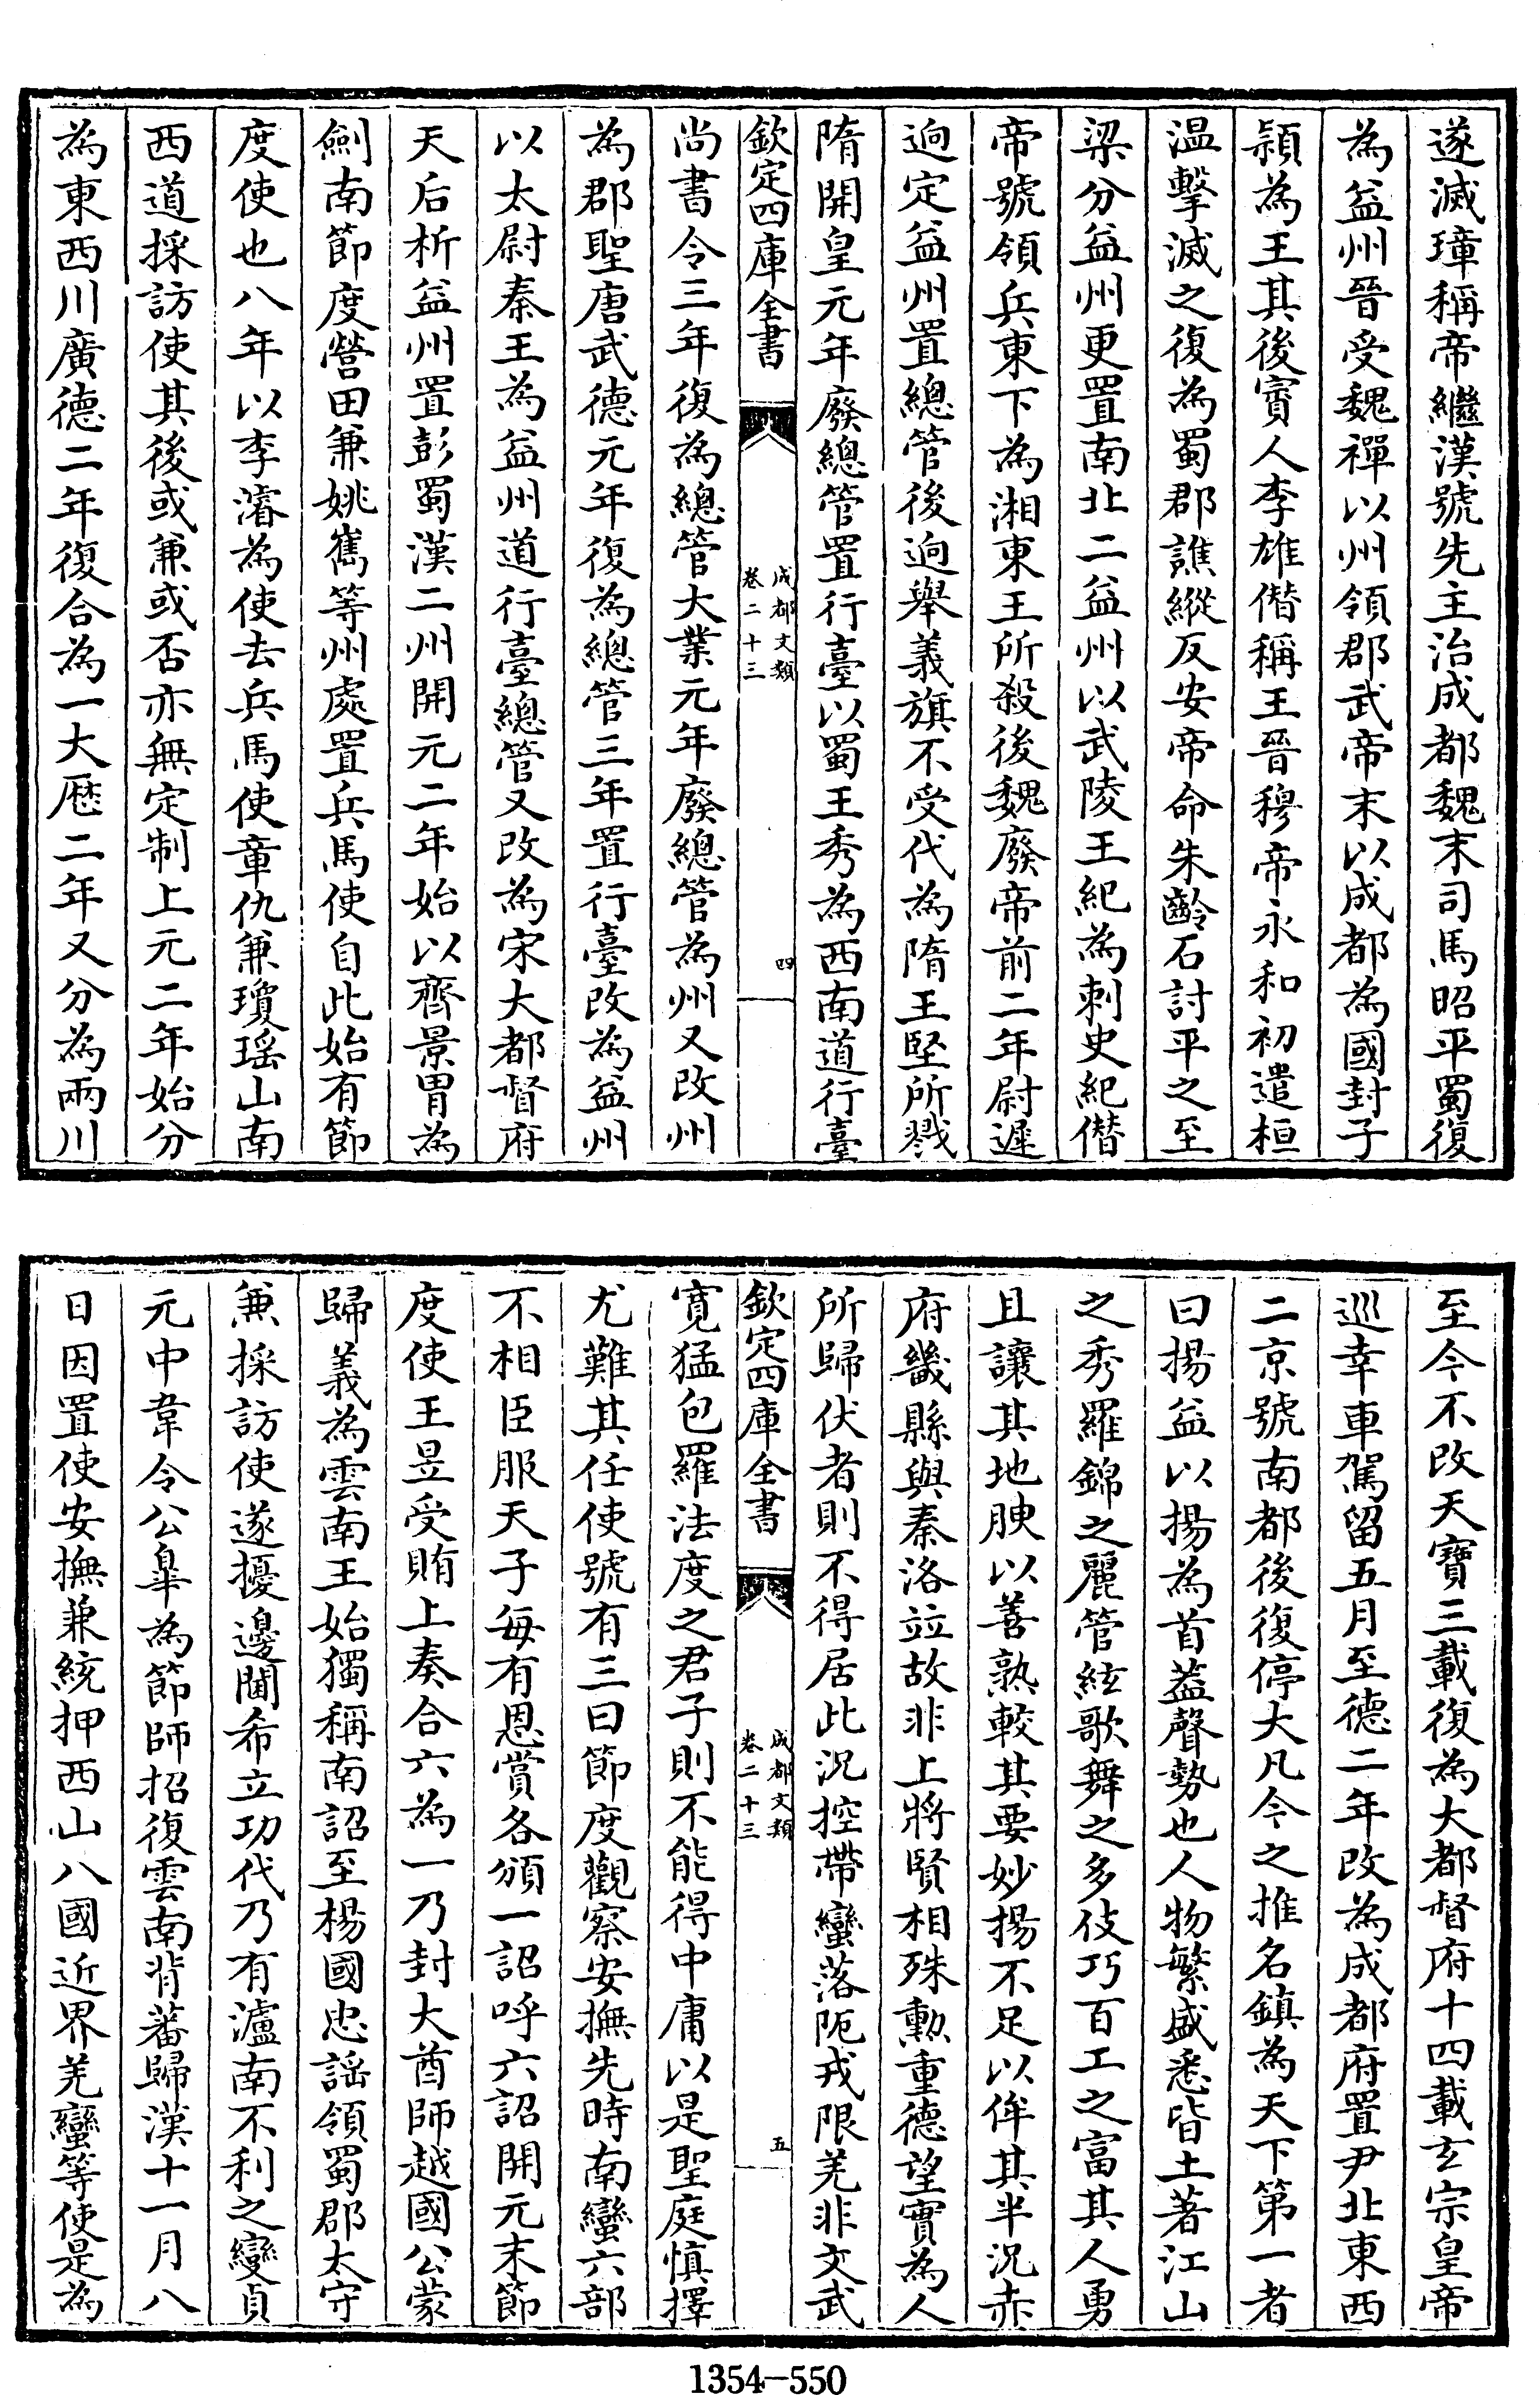 遂滅璋稱帝繼漢號先主治成都魏末司馬昭平蜀復
為益州晉受魏禪以州領郡武帝末以成都為國封子
頴為王其後賨人李雄僭稱王晉穆帝永和初遣桓
温擊滅之復為蜀郡譙縱反安帝命朱齡石討平之至
梁分益州更置南北二益州以武陵王紀為刺史紀僭
帝號領兵東下為湘東王所殺後魏廢帝前二年尉遲
迥定益州置總管後迥舉義旗不受代為隋王堅所戮
隋開皇元年廢總管置行臺以蜀王秀為西南道行臺
欽定四庫全書
成都文類
卷二十三
四
尚書令三年復為總管大業元年廢總管為州又改州
為郡聖唐武德元年復為總管三年置行臺改為益州
以太尉秦王為益州道行臺總管又改為宋大都督府
天后析益州置彭蜀漢二州開元二年始以齊景胄為
劍南節度營田兼姚嶲等州處置兵馬使自此始有節
度使也八年以李濬為使去兵馬使章仇兼瓊瑶山南
西道採訪使其後或兼或否亦無定制上元二年始分
為東西川廣德二年復合為一大厯二年又分為兩川
至今不改天寶三載復為大都督府十四載玄宗皇帝
巡幸車駕留五月至德二年改為成都府置尹北東西
二京號南都後復停大凡今之推名鎮為天下第一者
曰揚益以揚為首葢聲勢也人物繁盛悉皆土著江山
之秀羅錦之麗管絃歌舞之多伎巧百工之富其人勇
且讓其地腴以善熟較其要妙揚不足以侔其半況赤
府畿縣與秦洛竝故非上將賢相殊勲重德望實為人
所歸伏者則不得居此況控帶蠻落阨戎限羌非文武
欽定四庫全書
成都文類
卷二十三
五
寛猛包羅法度之君子則不能得中庸以是聖庭慎擇
尤難其任使號有三曰節度觀察安撫先時南蠻六部
不相臣服天子每有恩賞各頒一詔呼六詔開元末節
度使王昱受賄上奏合六為一乃封大酋師越國公蒙
歸義為雲南王始獨稱南詔至楊國忠謡領蜀郡太守
兼採訪使遂擾邊閫希立功代乃有瀘南不利之變貞
元中韋令公臯為節師招復雲南背蕃歸漢十一月八
日因置使安撫兼統押西山八國近界羌蠻等使是為
1354—550